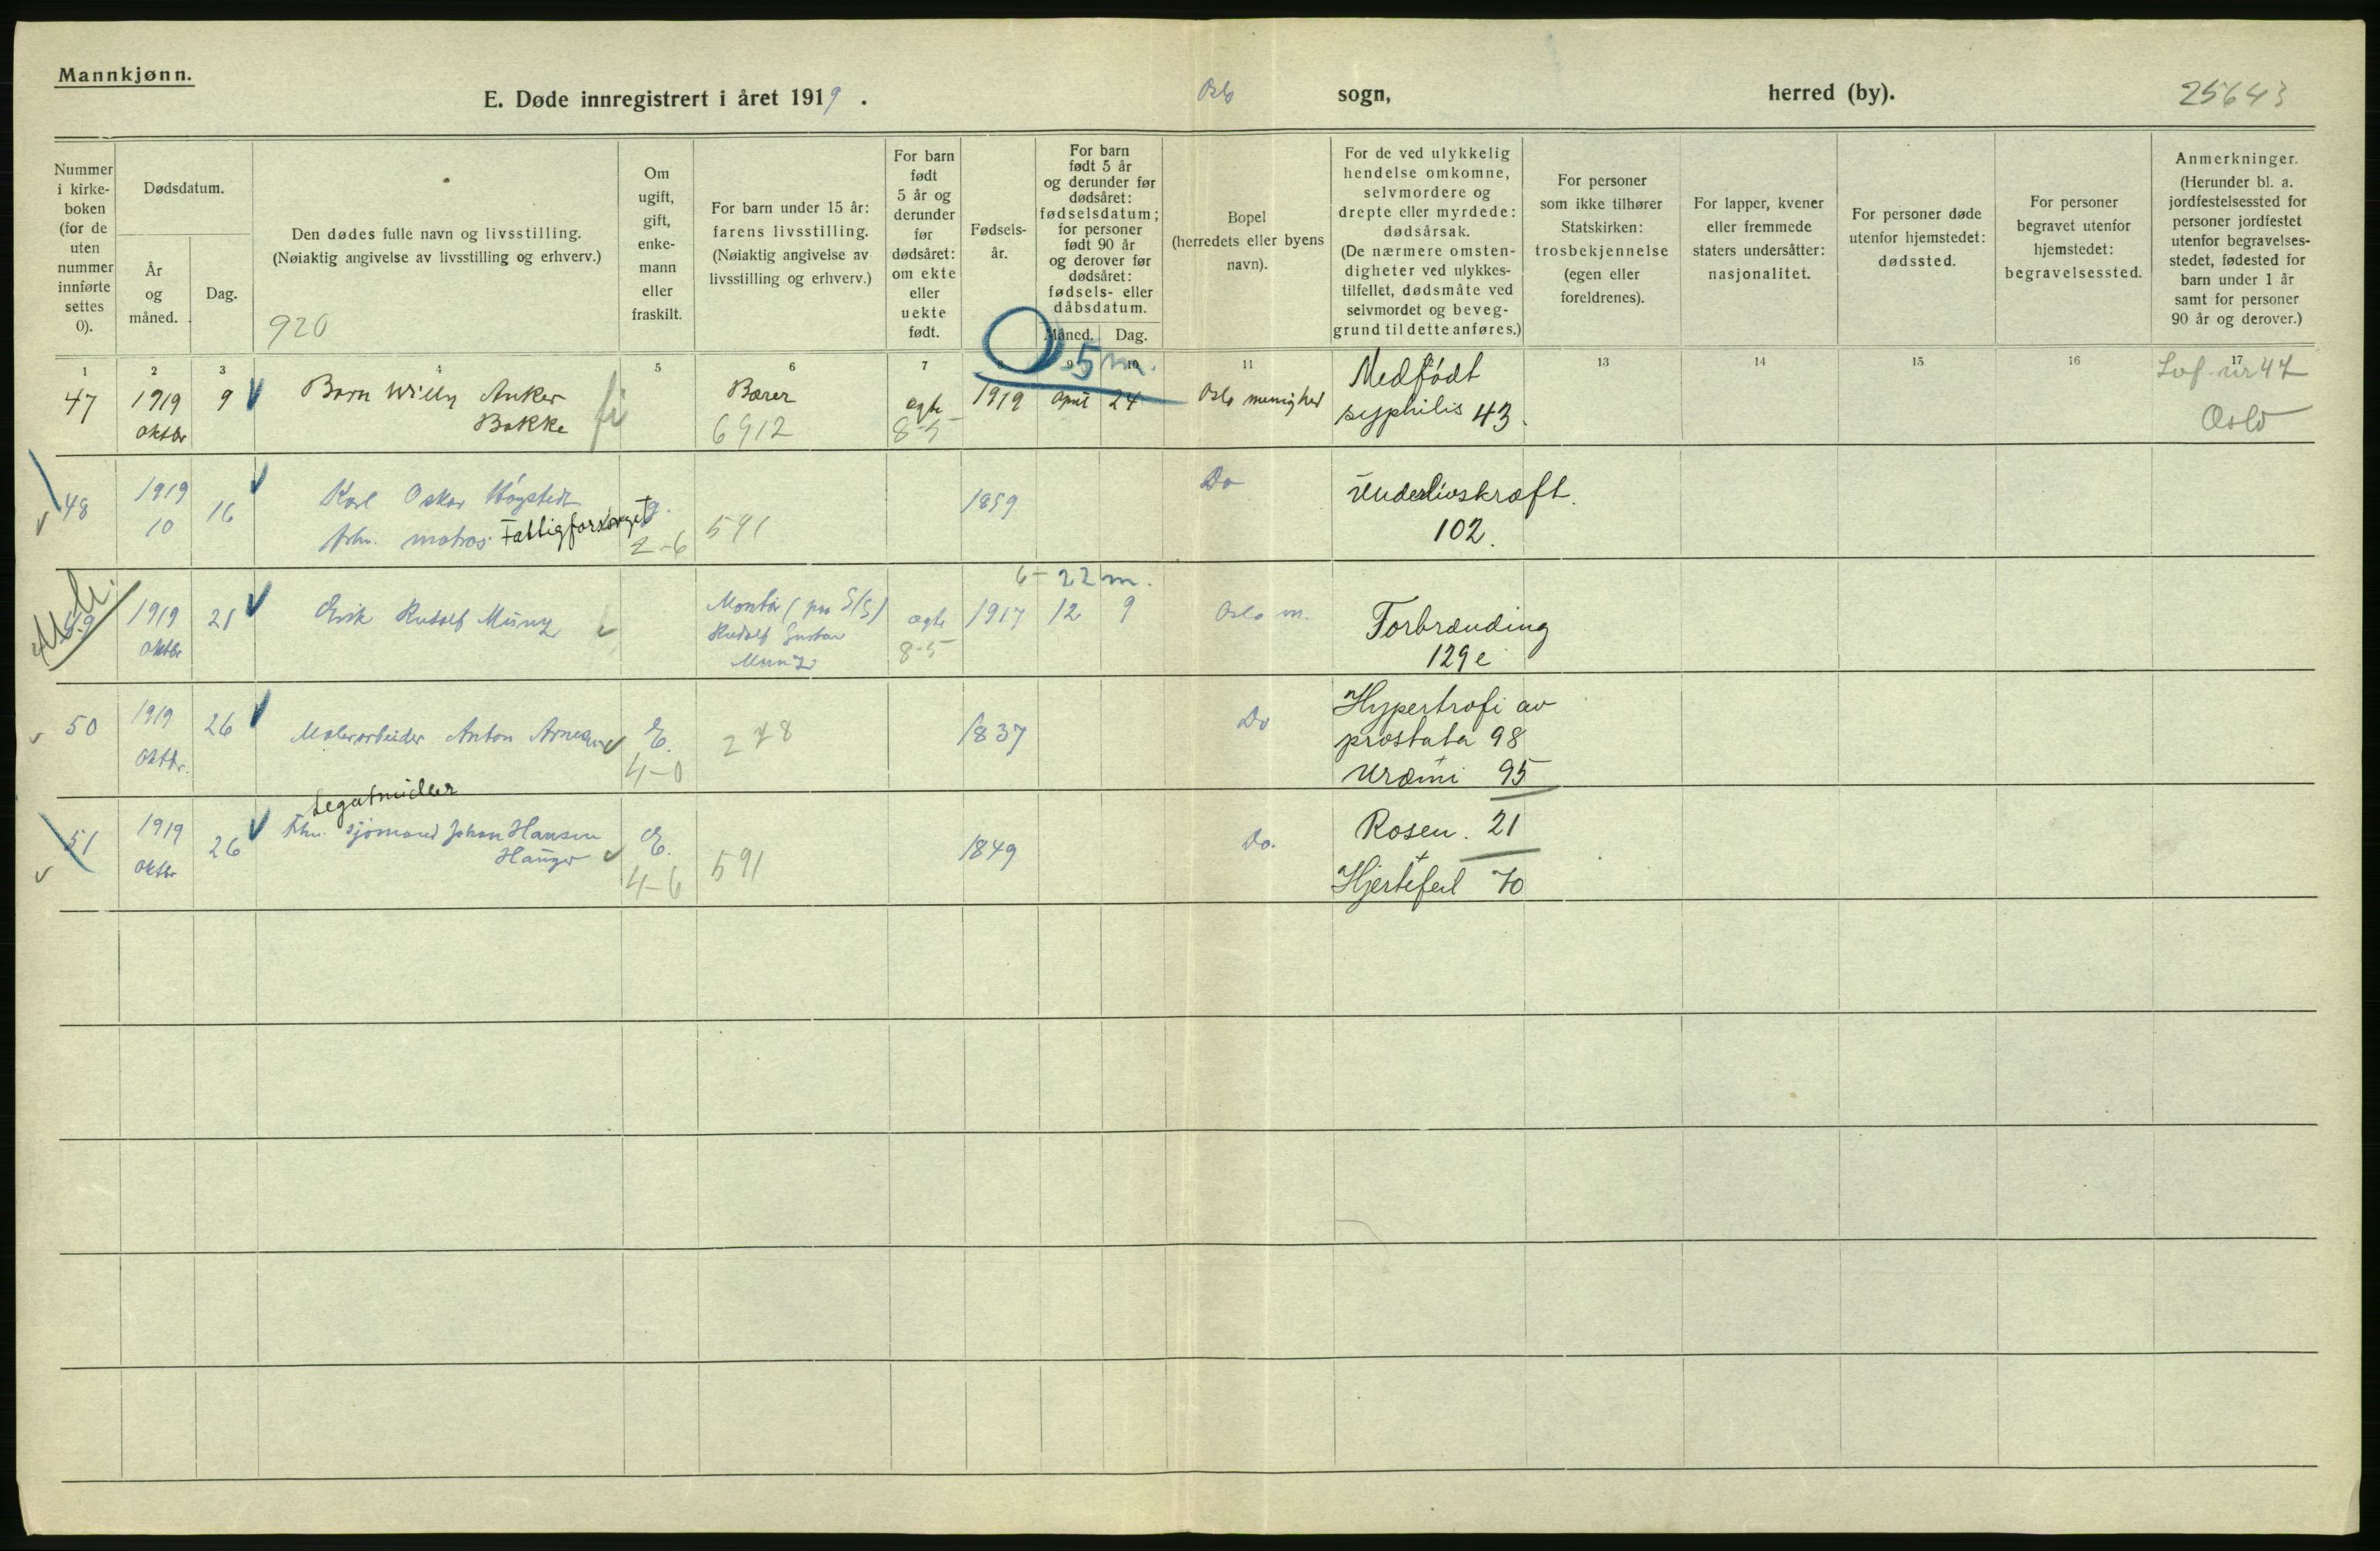 Mannkjønn.
E. Døde innregistrert i året 1919 . Oslo sogn, herred (by). 25643
Nummer i kirke- boken (for de uten nummer innførte settes 0).
Dødsdatum.
År og måned.
Dag.
Den dødes fulle navn og livsstilling.
(Nøiaktig angivelse av livsstilling og erhverv.)
920
Om ugift, gift, enke- mann eller fraskilt.
For barn under 15 år: farens livsstilling. (Nøiaktig angivelse av livsstilling og erhverv.)
For barn født 5 år og derunder før dødsåret: om ekte eller uekte født.
Fødsels- år.
For barn født 5 år og derunder før dødsåret: fødselsdatum; for personer født 90 år og derover før dødsåret: fødsels- eller dåbsdatum.
Måned. Dag.
Bopel (herredets eller byens navn).
For de ved ulykkelig hendelse omkomne, selvmordere og drepte eller myrdede: dødsårsak. (De nærmere omsten- digheter ved ulykkes- tilfellet, dødsmåte ved selvmordet og beveg- grund til dette anføres.)
For personer som ikke tilhører Statskirken: trosbekjennelse (egen eller foreldrenes).
For lapper, kvener eller fremmede staters undersåtter: nasjonalitet.
For personer døde utenfor hjemstedet: dødssted.
For personer begravet utenfor hjemstedet: begravelsessted.
Anmerkninger. (Herunder bl. a. jordfestelsessted for personer jordfestet utenfor begravelses- stedet, fødested for barn under 1 år samt for personer 90 år og derover.)
1 2 3 4 5 6 7 8 9 10 11 13 14 15 16 17
0 5 m.
47 1919 9 Barn Willy Anker Bærer ægte 1919 April 24 Oslo menighed Medfødt nr 47
Oktbr Bakke 6912 8-5 syphilis 43. Oslo
48 1919 16 Karl Oskar g. 1859 Do Underlivskræft.
10 fhv. matros Fattigforsørget 2-6 591 102.
6- 22 m.
49 1919 21 Erik Rudolf Münz Montør ægte 1917 12 9 Oslo m. Forbrænding
Oktbr Rudolf Gustav 8-5 129e
Münz
50 1919 26 Malerarbeider Anton E. 278 1837 Do Hypertrofi av
Oktbr. 4-0 prostata 98
+
Uræmi 95
Legatnyder
51 1919 26 Fhv. sjømand Johan Hansen E. 1849 Do. Rosen. 21
Oktbr 4-6 591 +
Hjertefeil 70